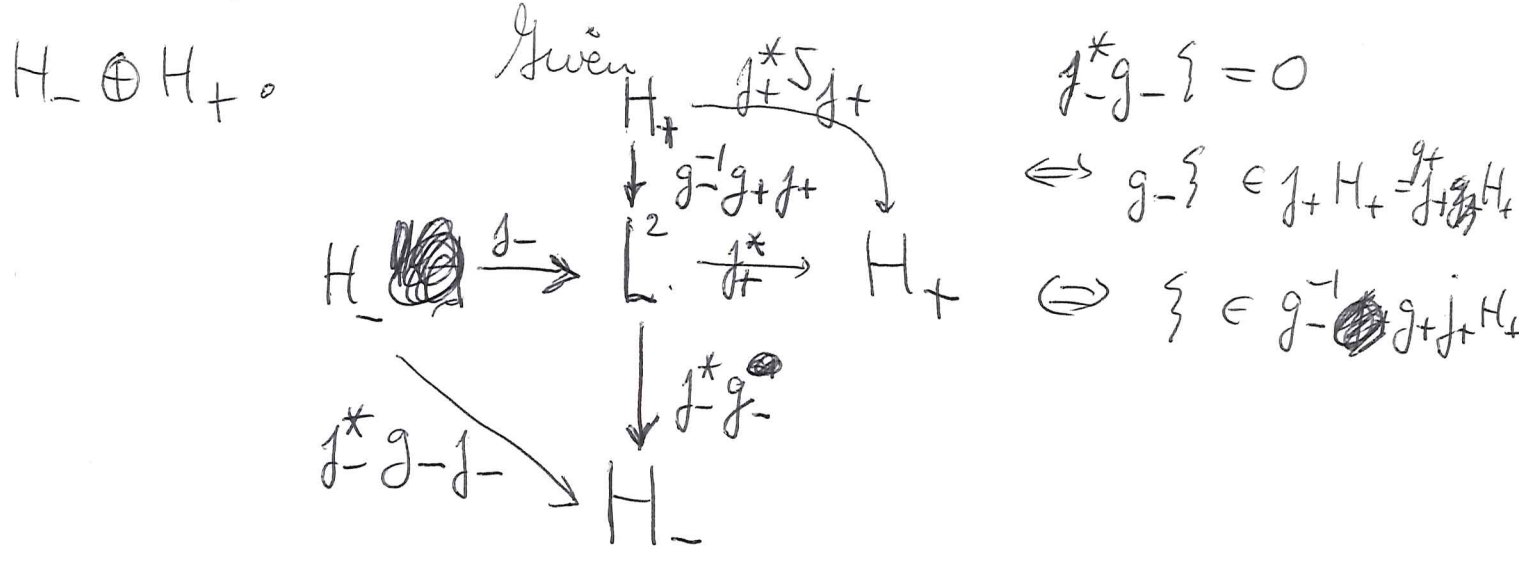 H_- ⊕ H_+ .
Given
H_+
j_+^* S j_+
g_-^{-1} g_+ j_+
H_-
j_-
L^2
j_+^*
H_+
j_-^* g_-
j_-^* g_- j_-
H_-
j_-^* g_- ξ = 0
⇔ g_- ξ ∈ j_+ H_+ =
⇔ ξ ∈ g_-^{-1} g_+ j_+ H_+